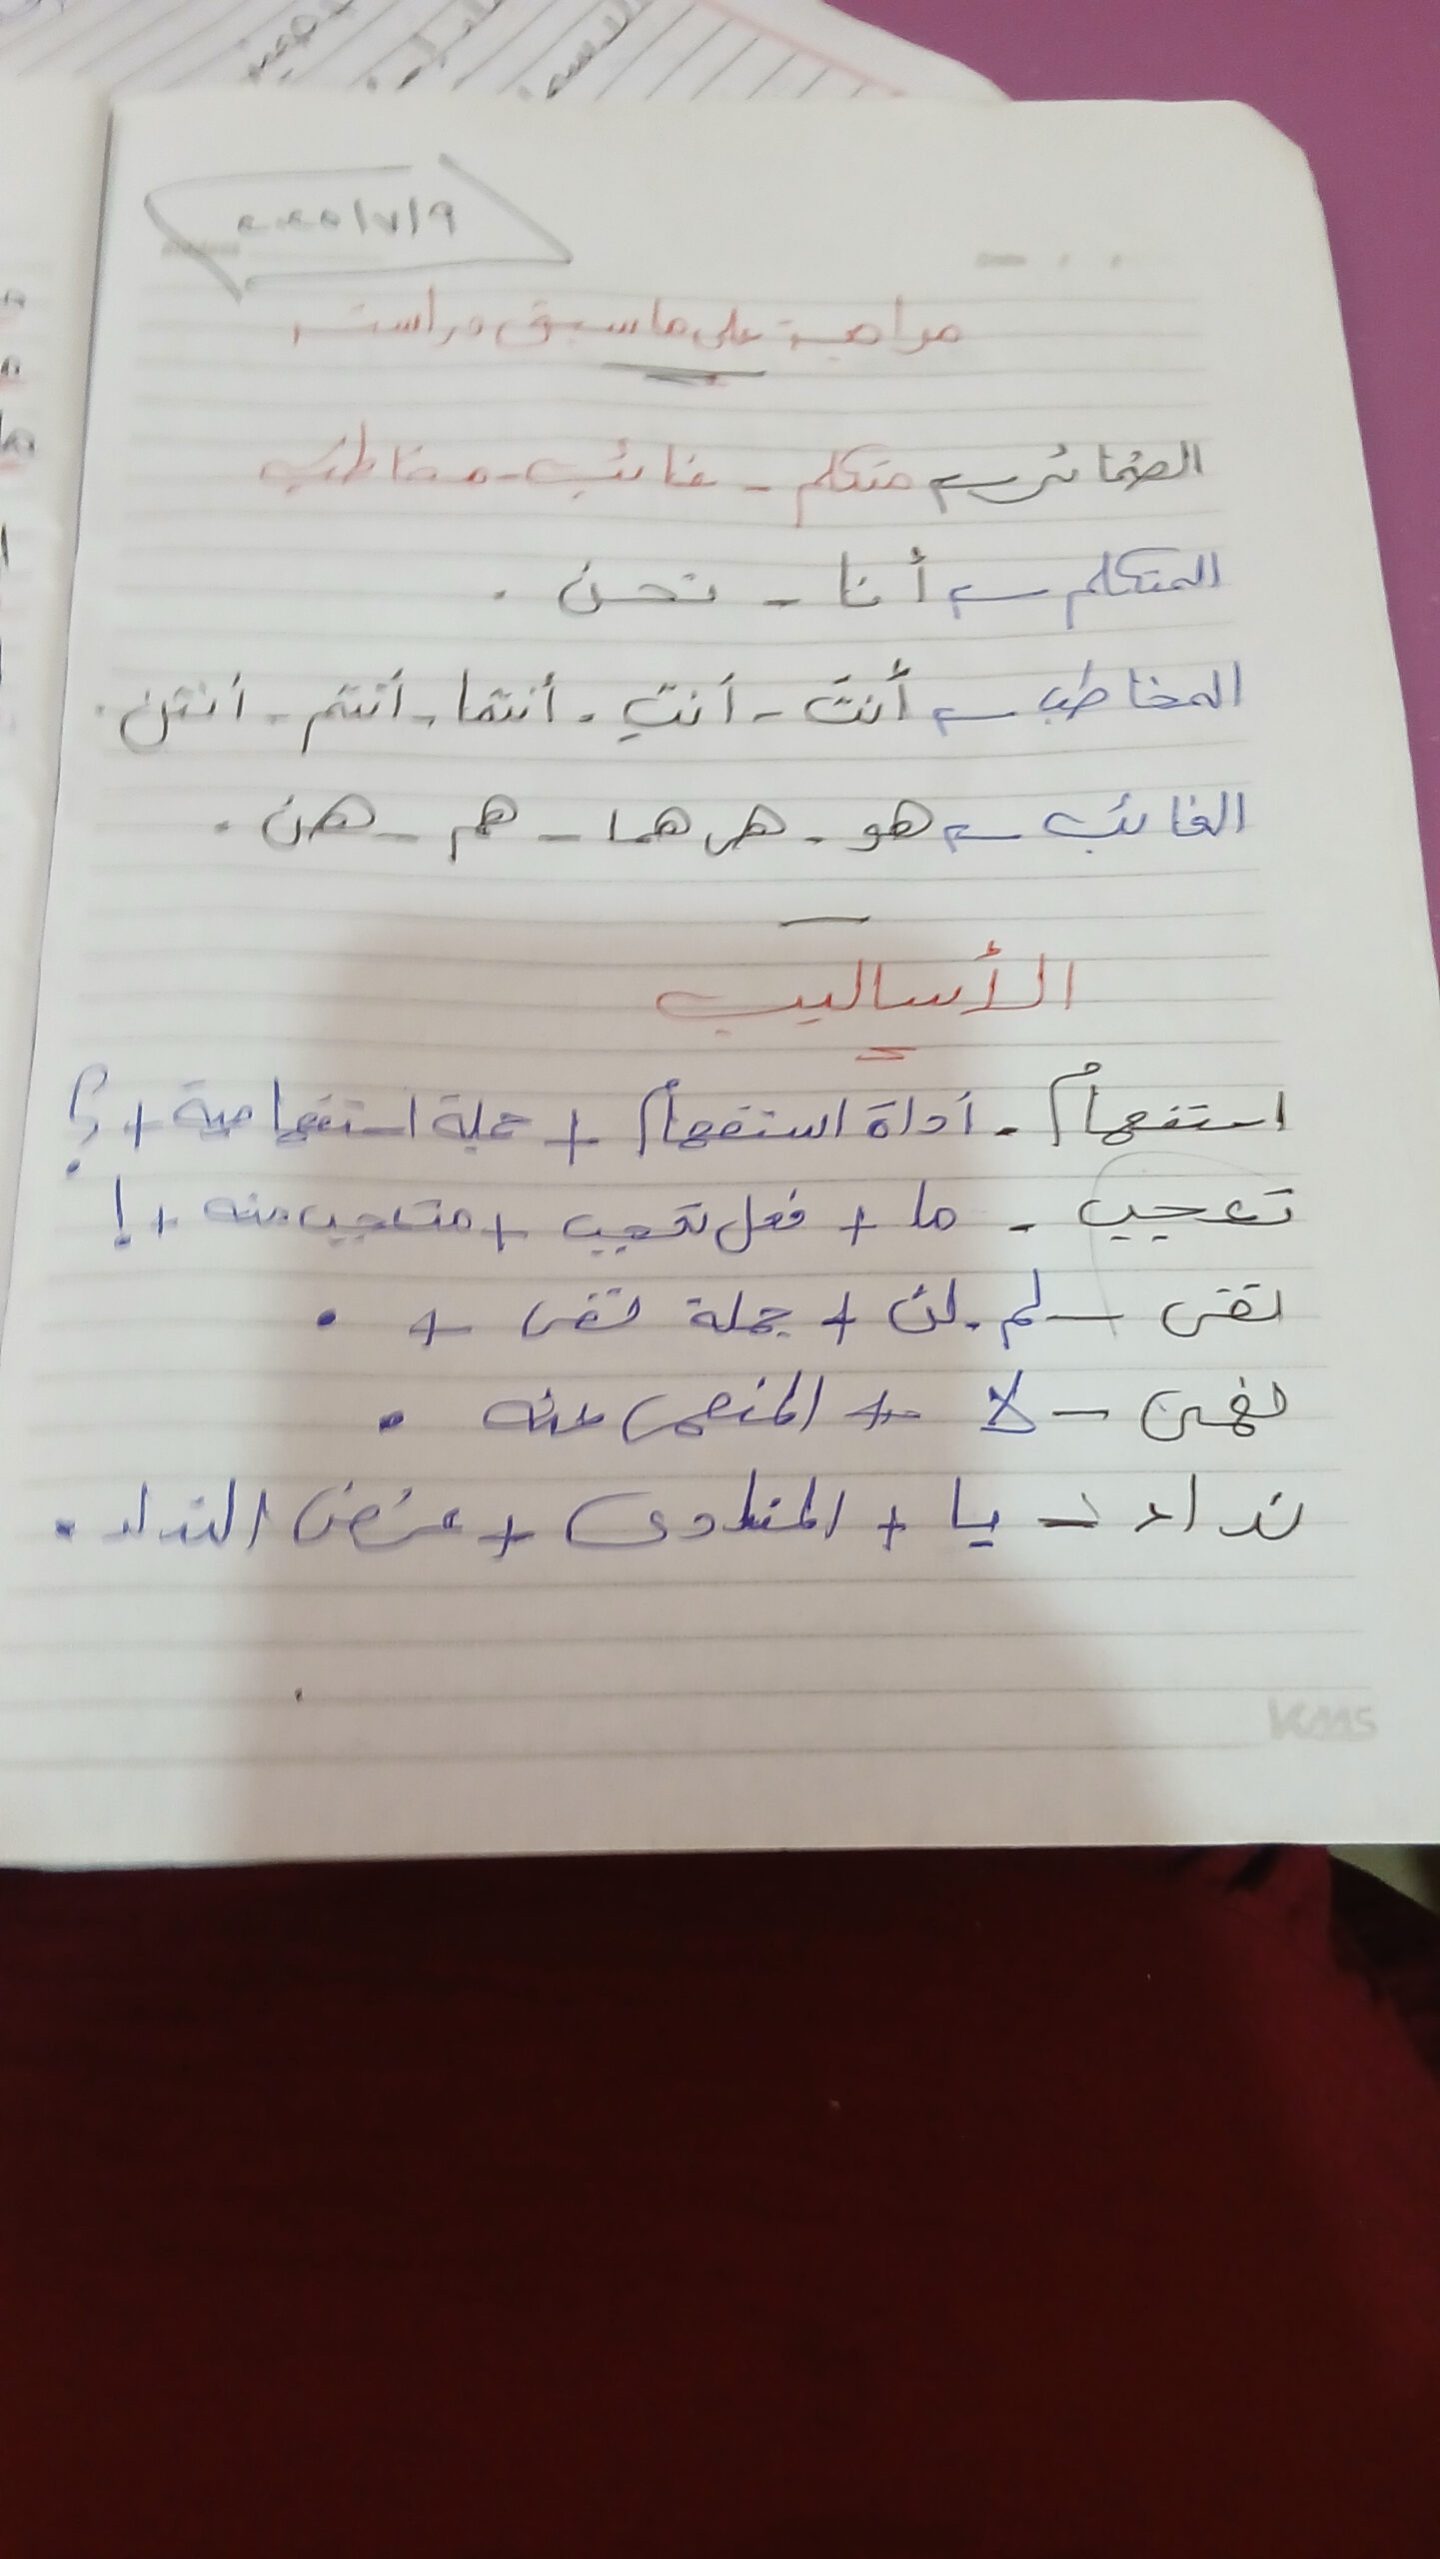 ٢٠٢٥/٧/٩
مراجعة على ما سبق دراسته
الضمائر ← متكلم - غائب - مخاطب
المتكلم ← أنا - نحن .
المخاطب ← أنتَ - أنتِ - أنتما - أنتم - أنتن .
الغائب ← هو - هى هما - هم - هن .
الأساليب
استفهام - أداة استفهام + جملة استفهامية + ؟
تعجب - ما + فعل تعجب + متعجب منه + !
نفى - لم . لن + جملة نفى + .
نهى - لا + المنهى عنه .
نداء - يا + المنادى + غرض النداء .